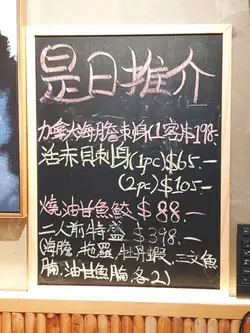 是日推介
加拿大海膽刺身(1客)$198.
活赤貝刺身(1pc)$65.—
(2pc)$105.—
燒油甘魚鮫$88.—
二人前特盛$398.—
(海膽、拖羅、牡丹蝦、三文魚
腩、油甘魚腩各2)